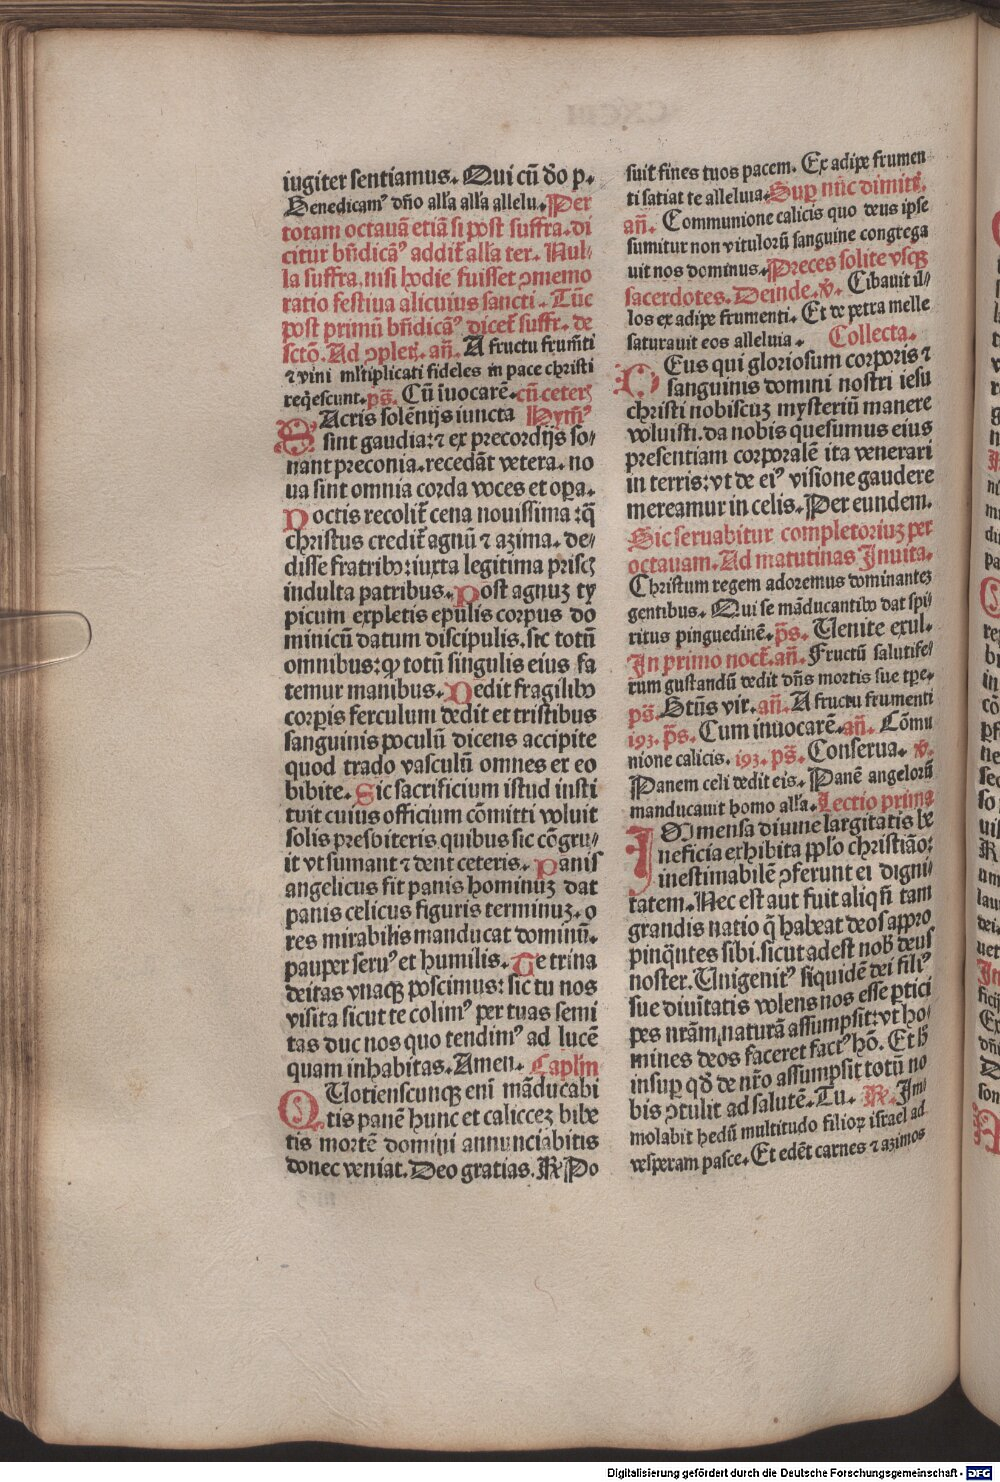 iugiter sentiamus. Qui cū ďo p.
Benedicamꝰ dn̄o all'a all'a allelu. Per
totam octauā etiā si post suffra. di
citur bn̄dicāꝰ addit̄ alla ter. Nul-
la suffra. nisi hodie fuisset ꝯmemo
ratio festiua alicuius sancti. Tūc
post primū bn̄dicāꝰ dicet̄ suffr. de
sctō. Ad ꝯpletꝭ. an̄. A fructu frum̄ti
⁊ vini ml'tiplicati fideles in pace christi
reqͥescunt. ps̄. Cū iuocarē. cū ceterꝭ
SAcris solēnijs iuncta Hym̄ꝰ
sint gaudia: ⁊ ex precordijs so/
nant preconia. recedāt vetera. no
ua sint omnia corda voces et oꝑa.
Noctis recolit̄ cena nouissima: q̄
christus credit̄ agnū ⁊ azima. de/
disse fratribꝰ: iuxta legitima priscꝭ
indulta patribus. Post agnuꝫ ty
picum expletis epulis corpus do
minicū datum discipulis. sic totū
omnibus: qꝫ totū singulis eius fa
temur manibus. Dedit fragilibꝰ
corpis ferculum dedit et tristibus
sanguinis poculū dicens accipite
quod trado vasculū omnes ex eo
bibite. Sic sacrificium istud insti
tuit cuius officium cōmitti voluit
solis presbiteris quibus sic cōgru/
it vt sumant ⁊ dent ceteris. Panis
angelicus fit panis hominuꝫ dat
panis celicus figuris terminuꝫ. o
res mirabilis manducat dominū.
pauper seruꝰ et humilis. Te trina
deitas vnaqꝫ poscimus: sic tu nos
visita sicut te colimꝰ per tuas semi
tas duc nos quo tendimꝰ ad lucē
quam inhabitas. Amen. Caplm
QUotienscunqꝫ enī māducabi
tis panē hunc et caliccez bibe
tis mortē domini annunciabitis
donec veniat. Deo gratias. ℟ Po
suit fines tuos pacem. Ex adipe frumen
ti satiat te alleluia. Suꝑ nūc dimitꝭ.
an̄. Communione calicis quo deus ipse
sumitur non vitulorū sanguine congrega
uit nos dominus. Preces solite vsqꝫ
sacerdotes. Deinde. ℣. Cibauit il/
los ex adipe frumenti. Et de petra melle
saturauit eos alleluia. Collecta.
DEus qui gloriosum corporis ⁊
sanguinis domini nostri iesu
christi nobiscuꝫ mysteriū manere
voluisti. da nobis quesumus eius
presentiam corporalē ita venerari
in terris: vt de eiꝰ visione gaudere
mereamur in celis. Per eundem.
Sic seruabitur completoriuꝫ per
octauam. Ad matutinas Inuita.
Christum regem adoremus dominantez
gentibus. Qui se māducantibꝰ dat spi/
ritus pinguedinē. ps̄. Uenite exul.
In primo noct̄. an̄. Fructū salutife/
rum gustandū dedit dn̄s mortis sue tꝑe.
ps̄. Btūs vir. an̄. A fructu frumenti
 iꝯꝫ. ps̄. Cum inuocarē. an̄. Cōmu
nione calicis. iꝯꝫ. ps̄. Conserua. ℣.
Panem celi dedit eis. Panē angelorū
manducauit homo all'a. Lectio prima
IMmensa diuine largitatis be
neficia exhibita pplo christiāo:
inestimabilē ꝯferunt ei digni/
tatem. Nec est aut fuit aliqn̄ tam
grandis natio q̄ habeat deos appro
pinq̄ntes sibi. sicut adest nob̄ deus
noster. Unigenitꝰ siquidē dei filiꝰ
sue diuītatis volens nos esse ꝑtici
pes nrām naturā assumpsit: vt ho/
mines deos faceret factꝰ hō. Et h̄
insuꝑ qd̄ de nr̄o assumpsit totū no
bis ꝯtulit ad salutē. Tu. ℟. Im/
molabit hedū multitudo filioꝝ israel ad
vesperam pasce. Et edēt carnes ⁊ azimos
Digitalisierung gefördert durch die Deutsche Forschungsgemeinschaft - DFG